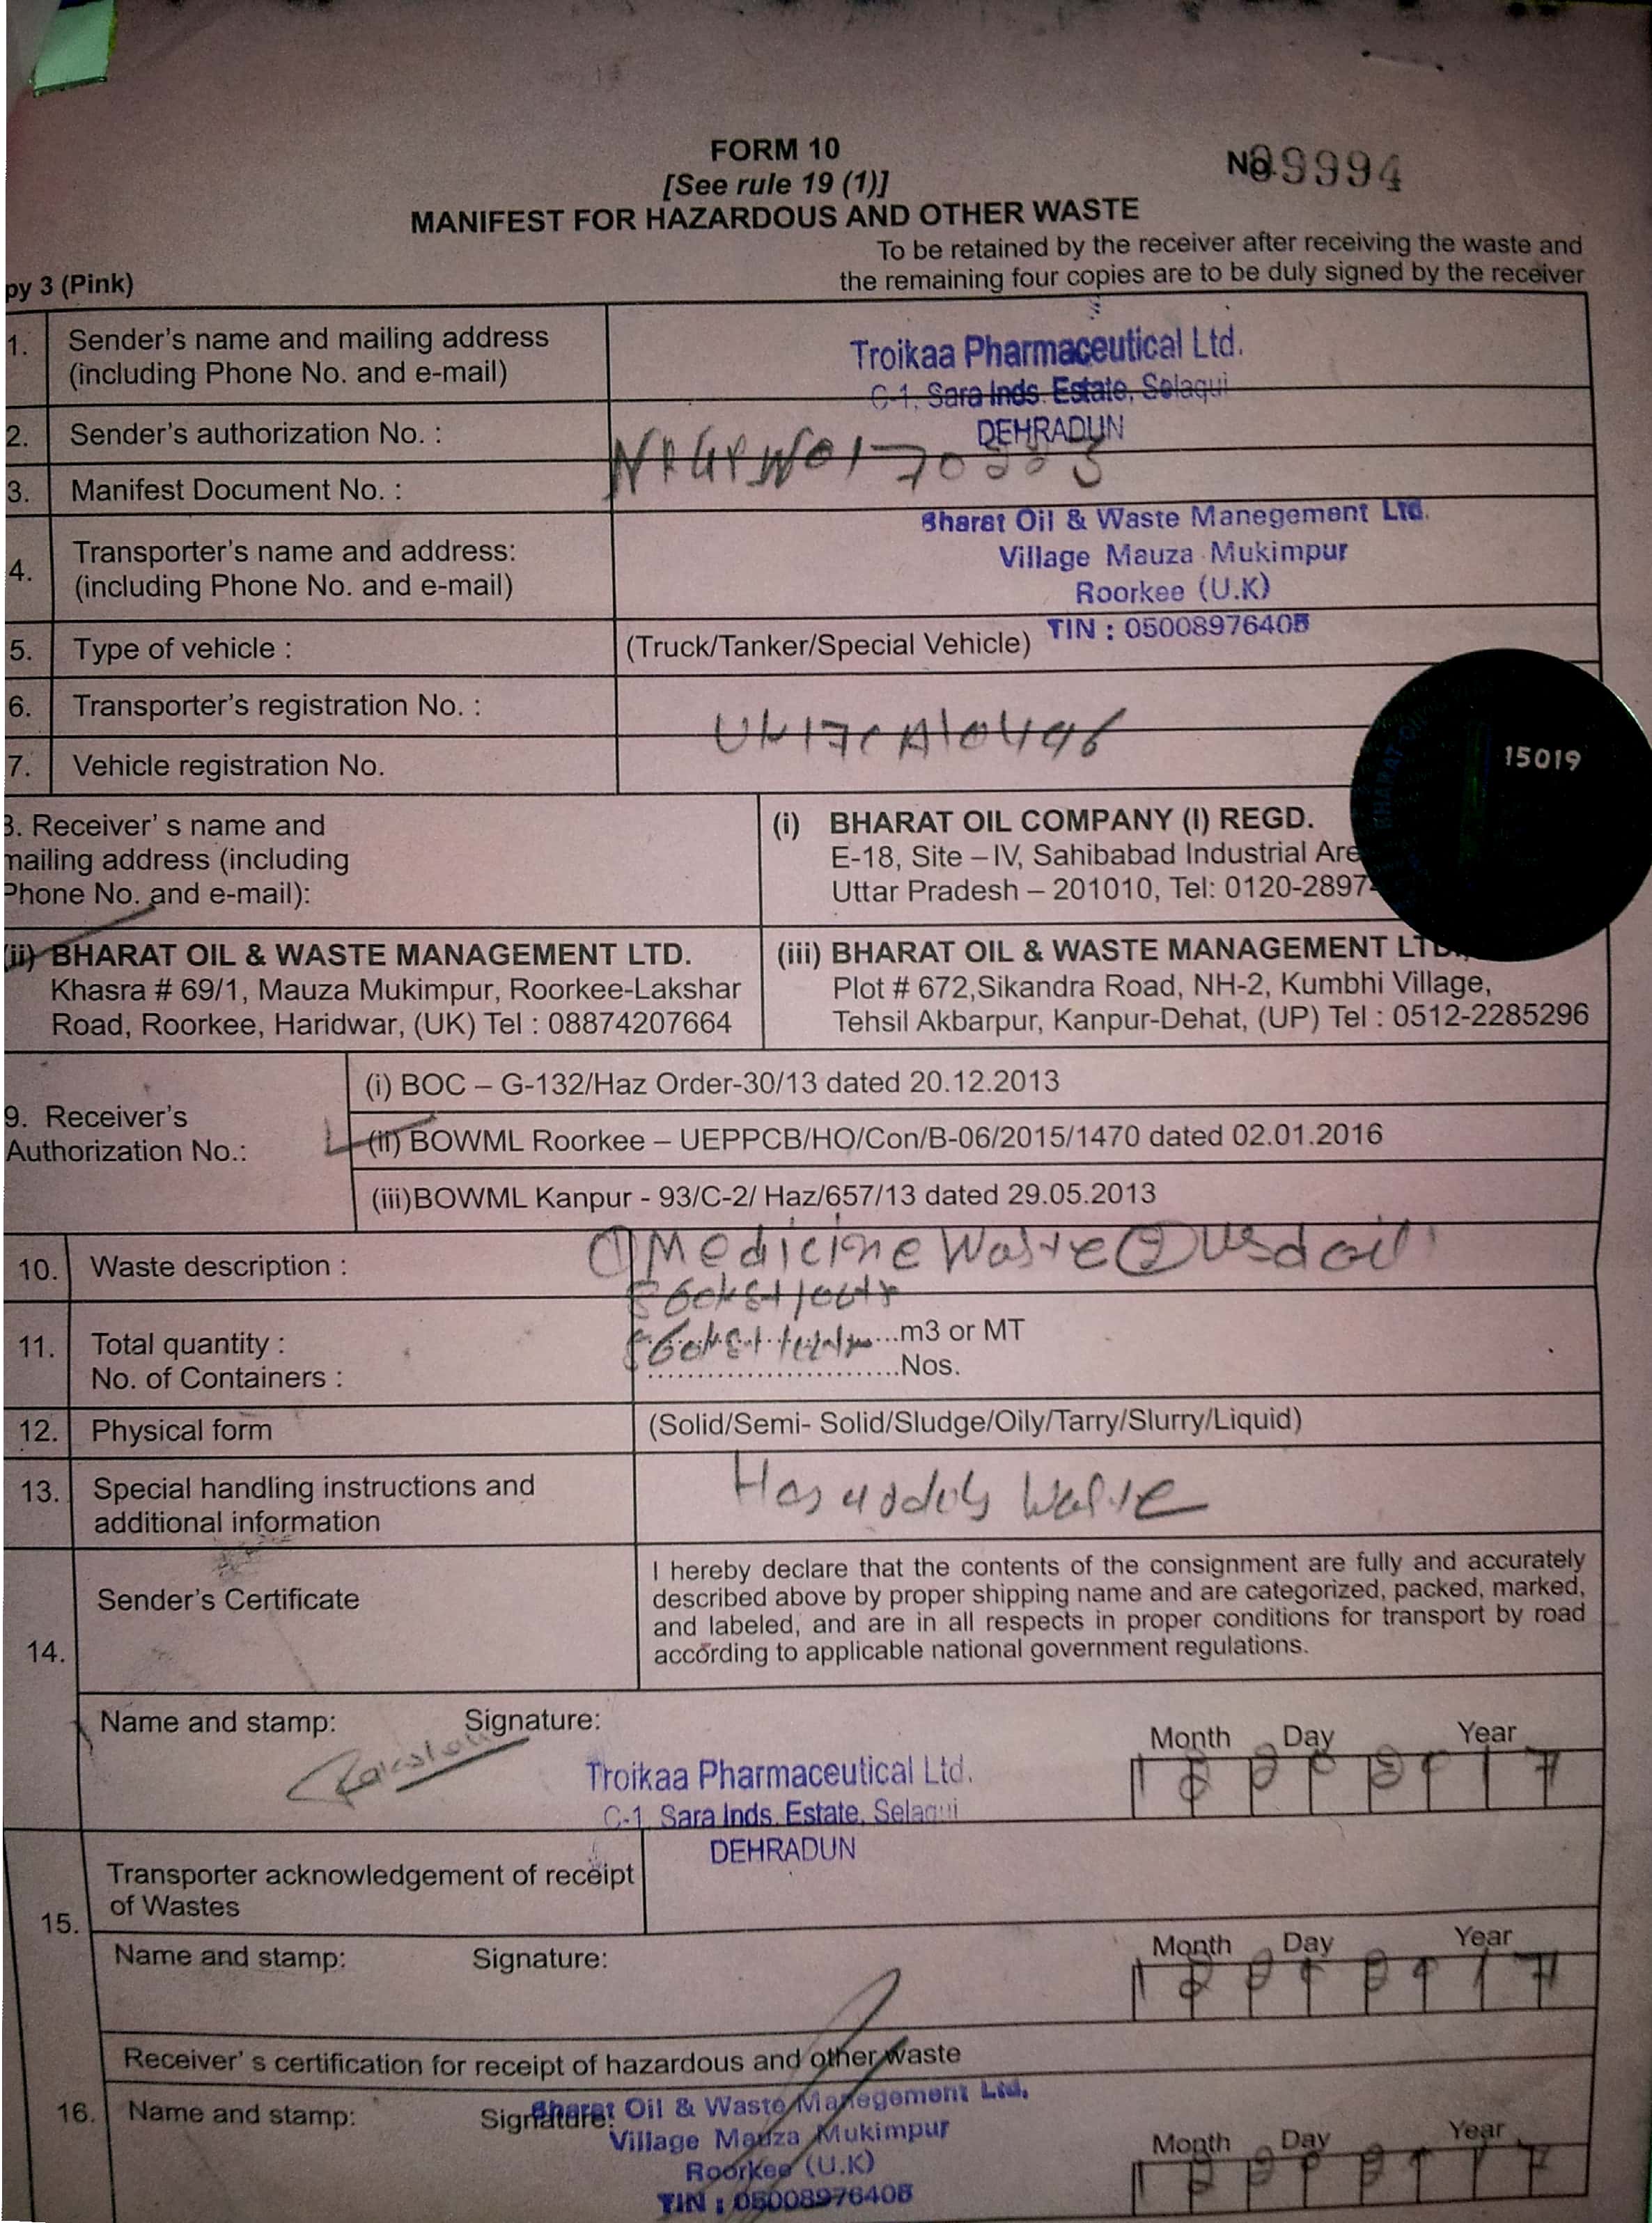 FORM 10
[See rule 19 (1)]
No. 9994
MANIFEST FOR HAZARDOUS AND OTHER WASTE
To be retained by the receiver after receiving the waste and
py 3 (Pink)
the remaining four copies are to be duly signed by the receiver
1. Sender's name and mailing address
(including Phone No. and e-mail)
Troikaa Pharmaceutical Ltd.
C-1, Sara Inds. Estate, Selaqui
DEHRADUN
2. Sender's authorization No. :
3. Manifest Document No. :
4. Transporter's name and address:
(including Phone No. and e-mail)
Bharat Oil & Waste Manegement Ltd.
Village Mauza Mukimpur
Roorkee (U.K)
TIN : 05008976405
5. Type of vehicle : (Truck/Tanker/Special Vehicle)
6. Transporter's registration No. :
7. Vehicle registration No.
8. Receiver' s name and
mailing address (including
Phone No. and e-mail):
(i) BHARAT OIL COMPANY (I) REGD.
E-18, Site – IV, Sahibabad Industrial Are
Uttar Pradesh – 201010, Tel: 0120-2897
15019
(ii) BHARAT OIL & WASTE MANAGEMENT LTD.
Khasra # 69/1, Mauza Mukimpur, Roorkee-Lakshar
Road, Roorkee, Haridwar, (UK) Tel : 08874207664
(iii) BHARAT OIL & WASTE MANAGEMENT LTD.,
Plot # 672,Sikandra Road, NH-2, Kumbhi Village,
Tehsil Akbarpur, Kanpur-Dehat, (UP) Tel : 0512-2285296
9. Receiver's
Authorization No.:
(i) BOC – G-132/Haz Order-30/13 dated 20.12.2013
(ii) BOWML Roorkee – UEPPCB/HO/Con/B-06/2015/1470 dated 02.01.2016
(iii)BOWML Kanpur - 93/C-2/ Haz/657/13 dated 29.05.2013
10. Waste description : ① Medicine Waste ② Usd oil
11. Total quantity : ...m3 or MT
No. of Containers : ...Nos.
12. Physical form (Solid/Semi- Solid/Sludge/Oily/Tarry/Slurry/Liquid)
13. Special handling instructions and
additional information
Waste
14. Sender's Certificate
I hereby declare that the contents of the consignment are fully and accurately
described above by proper shipping name and are categorized, packed, marked,
and labeled, and are in all respects in proper conditions for transport by road
according to applicable national government regulations.
Name and stamp: Signature:
Month Day Year
Troikaa Pharmaceutical Ltd.
C-1, Sara Inds. Estate, Selaqui
DEHRADUN
15. Transporter acknowledgement of receipt
of Wastes
Name and stamp: Signature:
Month Day Year
Receiver' s certification for receipt of hazardous and other waste
16. Name and stamp: Signature:
Bharat Oil & Waste Manegement Ltd.
Village Mauza Mukimpur
Roorkee (U.K)
TIN : 05008976405
Month Day Year